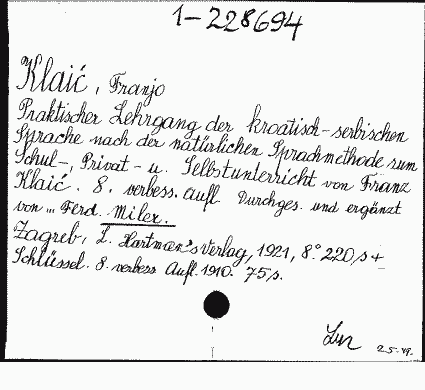 1-228694
Klaić, Franjo
Praktischer Lehrgang der kroatisch-serbischen
Sprache nach der natürlichen Sprachmethode zum
Schul-, Privat- u. Selbstunterricht von Franz
Klaić. 8. verbess. Aufl. Durchges. und ergänzt
von ... Ferd. Miler.
Zagreb, L. Hartman's Verlag, 1921, 8° 220 s +
Schlüssel. 8. verbess Aufl. 1910. 75 s.
25.49.